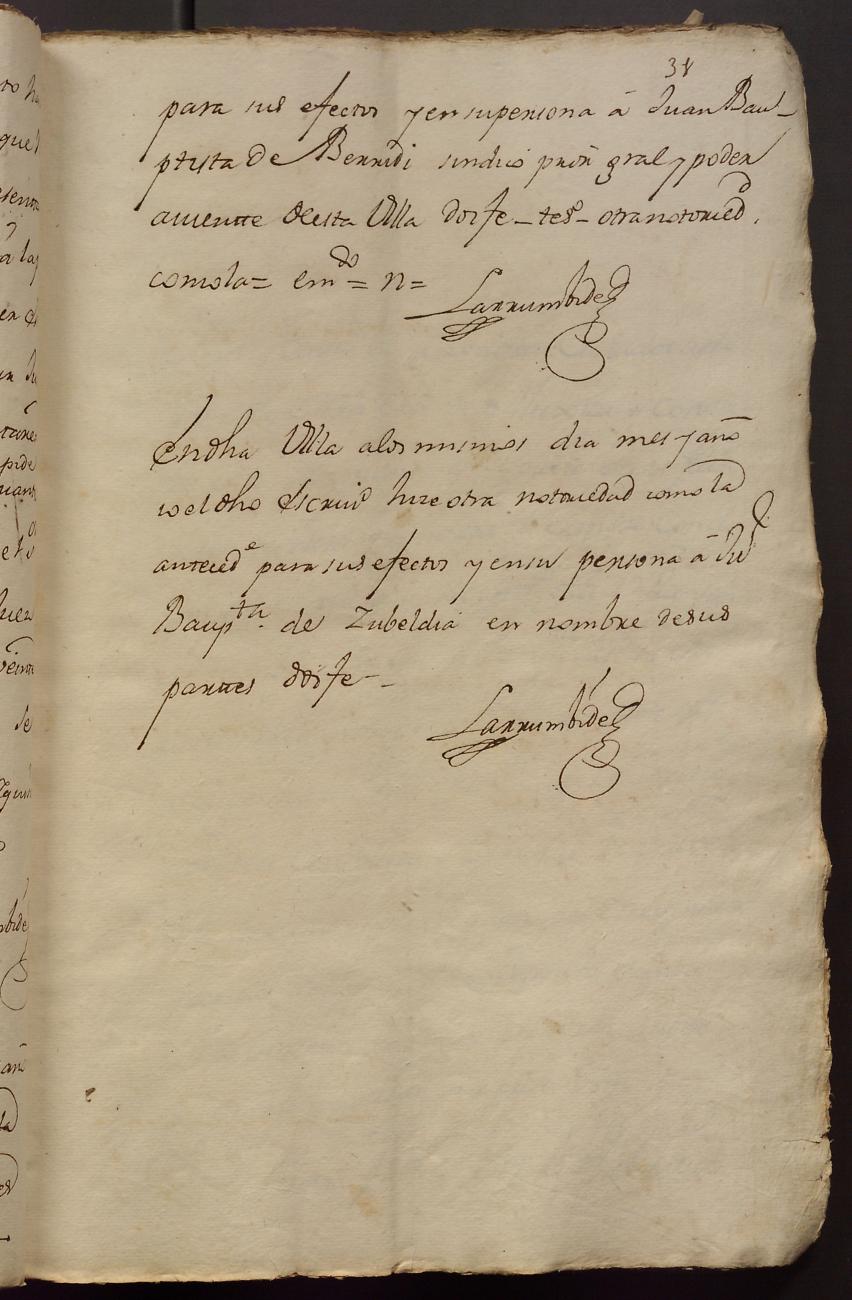 38
para sus efectos y en su persona à Juan Bau-
ptista de Berridi sindico prõr gral y poder
aviente desta Villa doi fe - tesº - otra notoried.
como la = emdo = n =
Larrumbide
En dha Villa a los mismos dia mes y año
io el dho Escrivº hize otra notoriedad como la
antecede para sus efectos y en su persona à Jun
Baupta de Zubeldia en nombre de sus
partes doi fe -
Larrumbide